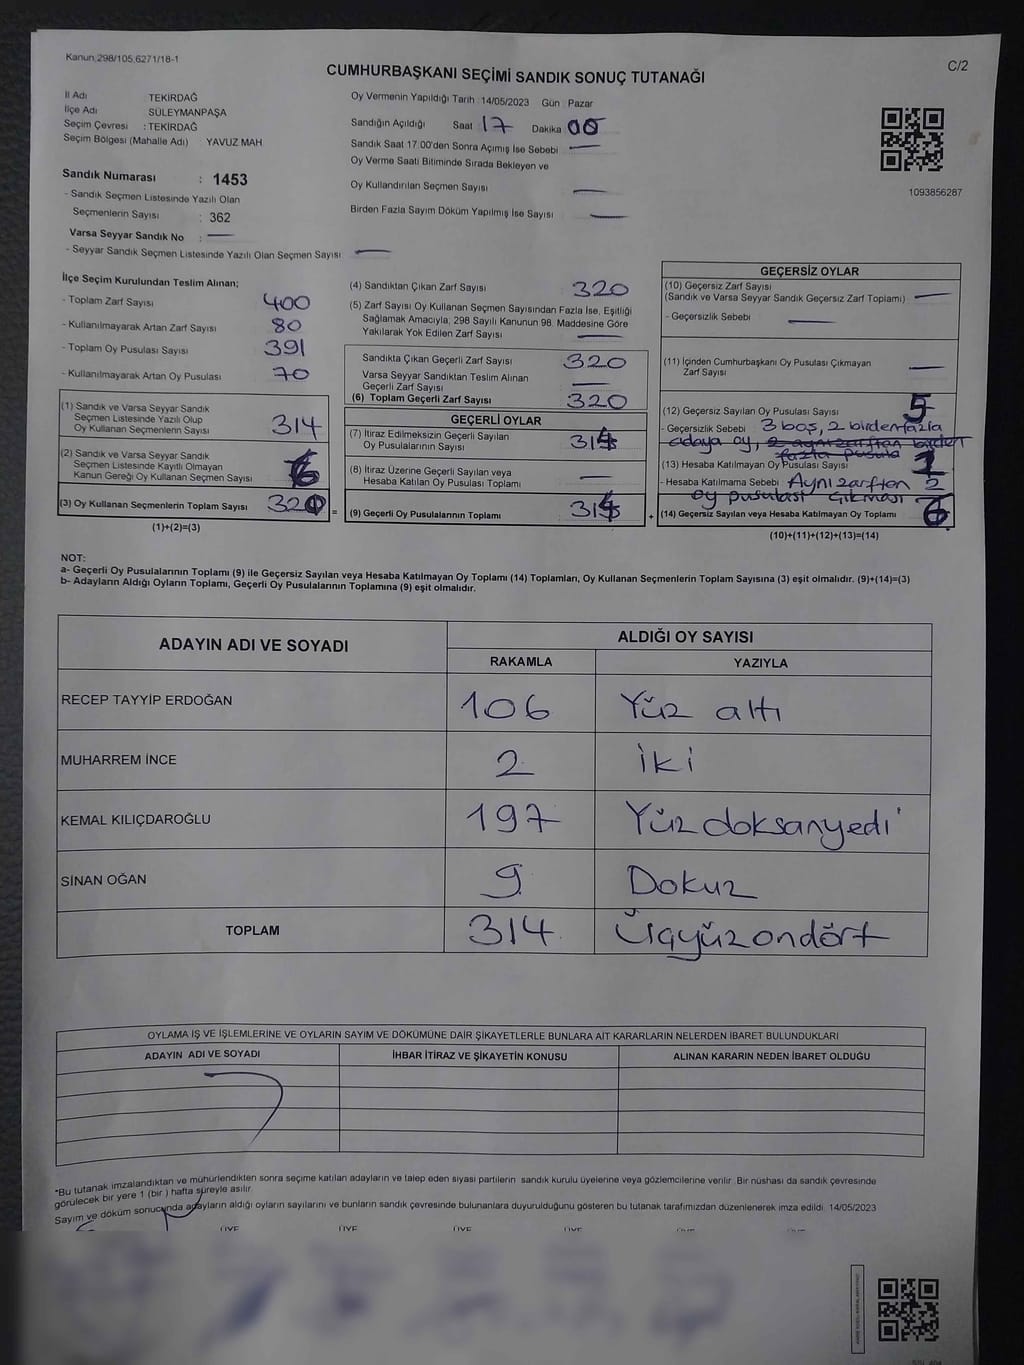 Kanun;298/105,6271/18-1
C/2
CUMHURBAŞKANI SEÇİMİ SANDIK SONUÇ TUTANAĞI
İl Adı TEKİRDAĞ
İlçe Adı SÜLEYMANPAŞA
Seçim Çevresi : TEKİRDAĞ
Seçim Bölgesi (Mahalle Adı) YAVUZ MAH
Sandık Numarası : 1453
- Sandık Seçmen Listesinde Yazılı Olan
Seçmenlerin Sayısı : 362
Varsa Seyyar Sandık No :
- Seyyar Sandık Seçmen Listesinde Yazılı Olan Seçmen Sayısı
Oy Vermenin Yapıldığı Tarih : 14/05/2023 Gün : Pazar
Sandığın Açıldığı Saat 17 Dakika 00
Sandık Saat 17.00'den Sonra Açımış İse Sebebi
Oy Verme Saati Bitiminde Sırada Bekleyen ve
Oy Kullandırılan Seçmen Sayısı
Birden Fazla Sayım Döküm Yapılmış İse Sayısı
1093856287
İlçe Seçim Kurulundan Teslim Alınan;
- Toplam Zarf Sayısı 400
- Kullanılmayarak Artan Zarf Sayısı 80
- Toplam Oy Pusulası Sayısı 391
- Kullanılmayarak Artan Oy Pusulası 70
(1) Sandık ve Varsa Seyyar Sandık
Seçmen Listesinde Yazılı Olup
Oy Kullanan Seçmenlerin Sayısı 314
(2) Sandık ve Varsa Seyyar Sandık
Seçmen Listesinde Kayıtlı Olmayan
Kanun Gereği Oy Kullanan Seçmen Sayısı 6
(3) Oy Kullanan Seçmenlerin Toplam Sayısı 320 =
(1)+(2)=(3)
(4) Sandıktan Çıkan Zarf Sayısı 320
(5) Zarf Sayısı Oy Kullanan Seçmen Sayısından Fazla İse, Eşitliği
Sağlamak Amacıyla; 298 Sayılı Kanunun 98. Maddesine Göre
Yakılarak Yok Edilen Zarf Sayısı
Sandıkta Çıkan Geçerli Zarf Sayısı 320
Varsa Seyyar Sandıktan Teslim Alınan
Geçerli Zarf Sayısı
(6) Toplam Geçerli Zarf Sayısı 320
GEÇERLİ OYLAR
(7) İtiraz Edilmeksizin Geçerli Sayılan
Oy Pusulalarının Sayısı 314
(8) İtiraz Üzerine Geçerli Sayılan veya
Hesaba Katılan Oy Pusulası Toplamı
(9) Geçerli Oy Pusulalarının Toplamı 314 +
GEÇERSİZ OYLAR
(10) Geçersiz Zarf Sayısı
(Sandık ve Varsa Seyyar Sandık Geçersiz Zarf Toplamı)
- Geçersizlik Sebebi
(11) İçinden Cumhurbaşkanı Oy Pusulası Çıkmayan
Zarf Sayısı
(12) Geçersiz Sayılan Oy Pusulası Sayısı 5
- Geçersizlik Sebebi 3 boş, 2 birden fazla
adaya oy, 2 aynı zarftan birden
fazla pusula
(13) Hesaba Katılmayan Oy Pusulası Sayısı 1
- Hesaba Katılmama Sebebi Aynı zarftan 2
oy pusulası çıkması
(14) Geçersiz Sayılan veya Hesaba Katılmayan Oy Toplamı 6
(10)+(11)+(12)+(13)=(14)
NOT:
a- Geçerli Oy Pusulalarının Toplamı (9) ile Geçersiz Sayılan veya Hesaba Katılmayan Oy Toplamı (14) Toplamları, Oy Kullanan Seçmenlerin Toplam Sayısına (3) eşit olmalıdır. (9)+(14)=(3)
b- Adayların Aldığı Oyların Toplamı, Geçerli Oy Pusulalarının Toplamına (9) eşit olmalıdır.
ADAYIN ADI VE SOYADI ALDIĞI OY SAYISI
RAKAMLA YAZIYLA
RECEP TAYYİP ERDOĞAN 106 Yüz altı
MUHARREM İNCE 2 iki
KEMAL KILIÇDAROĞLU 197 Yüz doksanyedi
SİNAN OĞAN 9 Dokuz
TOPLAM 314 Üçyüzondört
OYLAMA İŞ VE İŞLEMLERİNE VE OYLARIN SAYIM VE DÖKÜMÜNE DAİR ŞİKAYETLERLE BUNLARA AİT KARARLARIN NELERDEN İBARET BULUNDUKLARI
ADAYIN ADI VE SOYADI İHBAR İTİRAZ VE ŞİKAYETİN KONUSU ALINAN KARARIN NEDEN İBARET OLDUĞU
*Bu tutanak imzalandıktan ve mühürlendikten sonra seçime katılan adayların ve talep eden siyasi partilerin sandık kurulu üyelerine veya gözlemcilerine verilir. Bir nüshası da sandık çevresinde
görülecek bir yere 1 (bir) hafta süreyle asılır.
Sayım ve döküm sonucunda adayların aldığı oyların sayılarını ve bunların sandık çevresinde bulunanlara duyurulduğunu gösteren bu tutanak tarafımızdan düzenlenerek imza edildi. 14/05/2023
ÜYE ÜYE ÜYE ÜYE ÜYE ÜYE